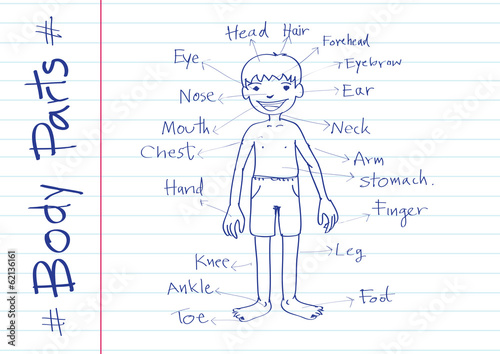 # Body Parts #
Head
Hair
Forehead
Eye
Eyebrow
Nose
Ear
Mouth
Neck
Chest
Arm
Stomach.
Hand
Finger
Knee
Leg
Ankle
Foot
Toe
Adobe Stock | #62136161